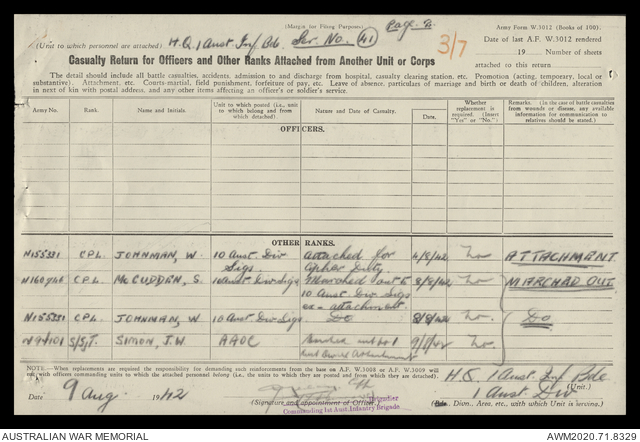 (Margin for Filing Purposes)
Page 2.
Army Form W.3012 (Books of 100).
(Unit to which personnel are attached) H.Q. 1 Aust Inf Bde Ser. No. 41
3/7
Date of last A.F. W.3012 rendered
19 Number of sheets
Casualty Return for Officers and Other Ranks Attached from Another Unit or Corps
attached to this return
The detail should include all battle casualties, accidents, admission to and discharge from hospital, casualty clearing station, etc. Promotion (acting, temporary, local or
substantive). Attachment, etc. Courts-martial, field punishment, forfeiture of pay, etc. Leave of absence, particulars of marriage and birth or death of children, alteration
in next of kin with postal address, and any other items affecting an officer's or soldier's service.
Army No. Rank. Name and Initials. Unit to which posted (i.e., unit to which belong and from which detached). Nature and Date of Casualty. Date. Whether replacement is required. (Insert "Yes" or "No.") Remarks. (In the case of battle casualties from wounds or disease, any available information for communication to relatives should be stated.)
OFFICERS.
OTHER RANKS.
N155351 CPL JOHNMAN, W. 10 Aust. Div Sigs. attached for Cipher Duty. 4/8/42 No ATTACHMENT.
CPL. McCUDDEN, S. 10 Aust Div Sigs Marched out to 10 Aust Div Sigs ex-attachment 8/8/42 No. MARCHED OUT.
N155351 CPL. JOHNMAN, W. 10 Aust Div Sigs Do 8/8/42 No. Do
S/SJT. SIMON, J.W. AAOC 9/8/42 No.
NOTE.—When replacements are required the responsibility for demanding such reinforcements from the base on A.F. W.3008 or A.F. W.3009 will
rest with officers commanding units to which the personnel belong (i.e., the units to which they are posted and from which they are detached).
H.Q. 1 Aust. Inf Bde (Unit.)
Date 9 Aug. 1942
Brigadier
(Signature and appointment of Officer.)
Commanding 1st Aust. Infantry Brigade
1 Aust Div
Bde., Divn., Area, etc., with which Unit is serving.)
AUSTRALIAN WAR MEMORIAL
AWM2020.71.8329